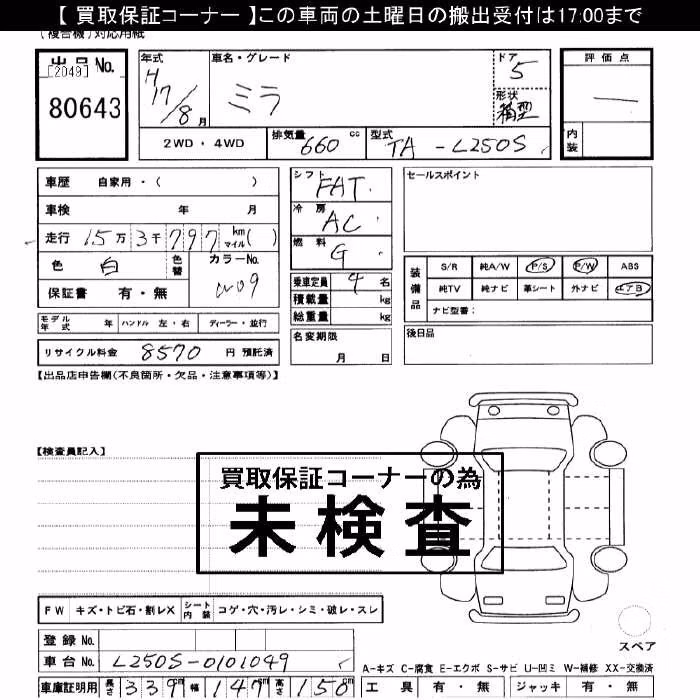 【 買取保証コーナー 】この車両の土曜日の搬出受付は17:00まで
(複合機)対応用紙
出品No.
[2049]
80643
年式
H17/8月
車名・グレード
ミラ
ドア
5
形状
箱型
評価点
—
内装
2WD・4WD
排気量 660 cc
型式 TA-L250S
車歴 自家用・( )
車検 年 月
走行 15万3千797 km マイル ( )
色 白
色替
カラーNo.
W09
保証書 有・無
シフト
FAT
冷房
AC
燃料
G
乗車定員 4 名
積載量 kg
総重量 kg
セールスポイント
装備品
S/R 純A/W P/S P/W ABS
純TV 純ナビ 革シート 外ナビ エアB
ナビ型番:
モデル年式 年 ハンドル 左・右 ディーラー・並行
名変期限
月 日
後日品
リサイクル料金 8570 円 預託済
【出品店申告欄(不良箇所・欠品・注意事項等)】
【検査員記入】
買取保証コーナーの為
未検査
FW キズ・トビ石・割レX シート内装 コゲ・穴・汚レ・シミ・破レ・スレ
スペア
登録 No.
車台 No. L250S-0101049
A-キズ C-腐食 E-エクボ S-サビ U-凹ミ W-補修 XX-交換済
車庫証明用 長さ 339cm 幅 147cm 高さ 150cm
工具 有・無 ジャッキ 有・無